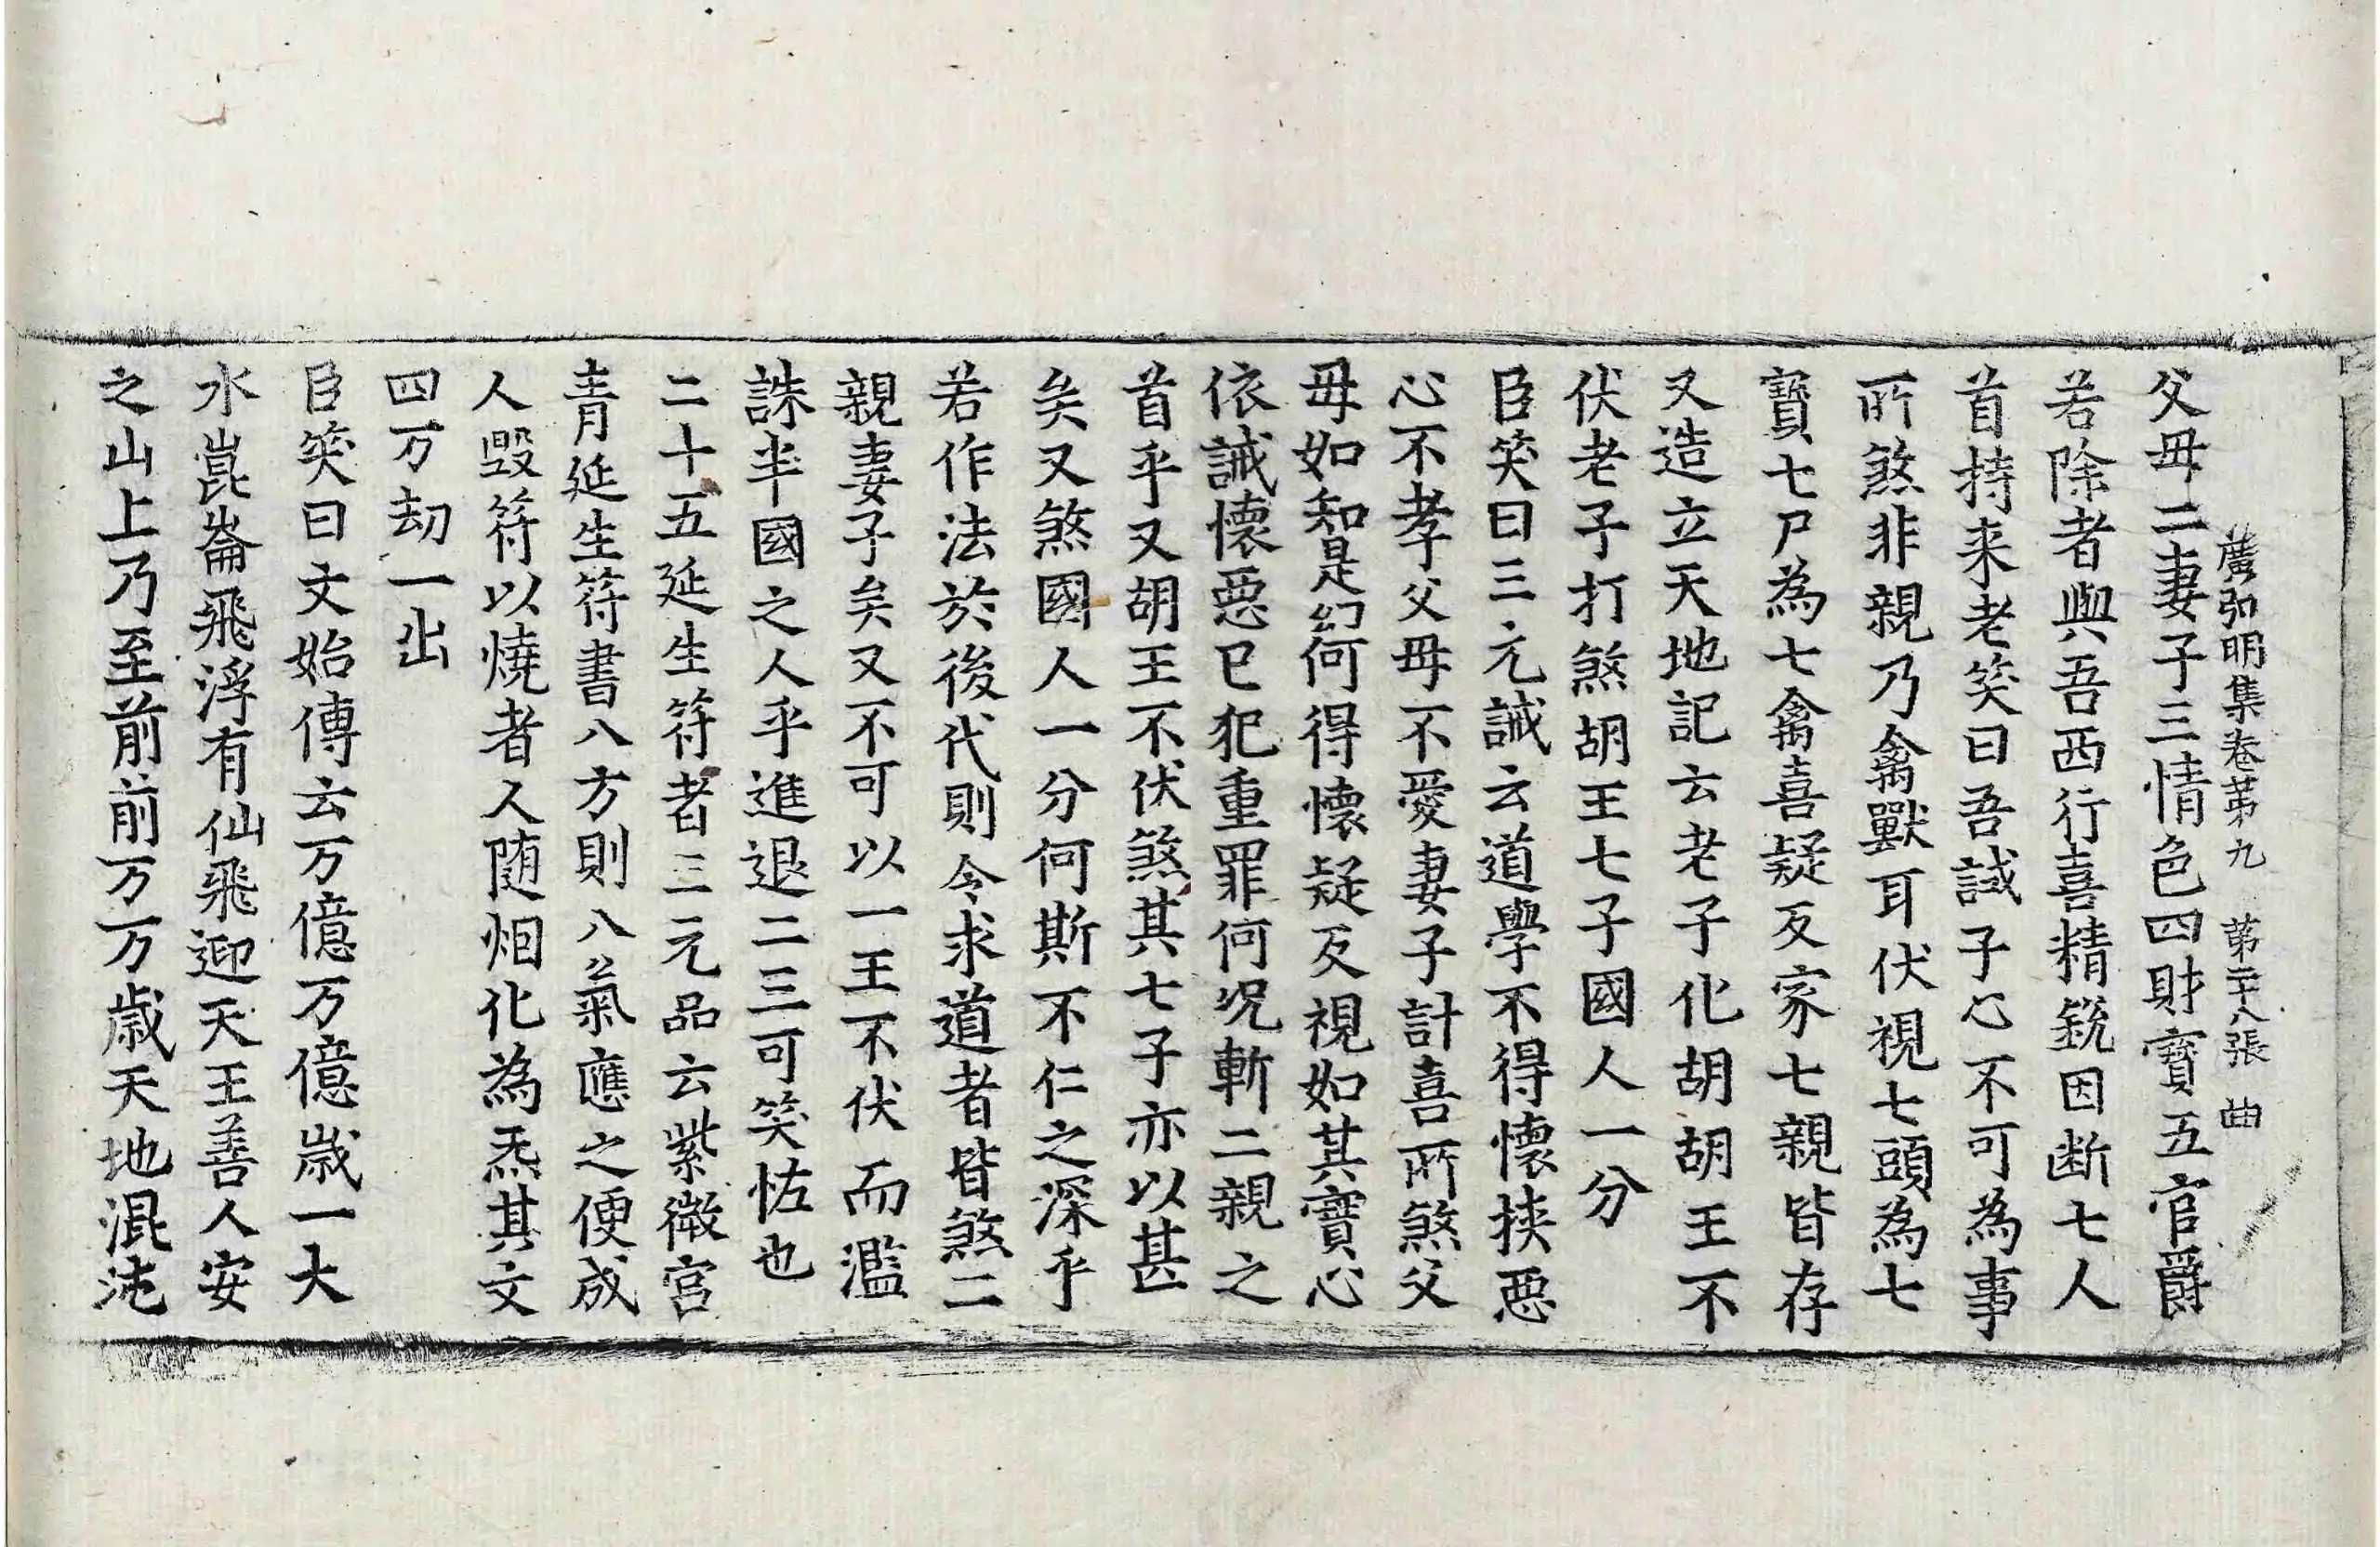 廣弘明集卷苐九　苐二十八張　曲
父母二妻子三情色四財寶五官爵
若除者與吾西行喜精銳因断七人
首持来老笑曰吾試子心不可為事
所煞非親乃禽獸耳伏視七頭為七
寶七尸為七禽喜疑反家七親皆存
又造立天地記云老子化胡胡王不
伏老子打煞胡王七子國人一分
臣笑曰三元誡云道學不得懷挾惡
心不孝父母不愛妻子計喜所煞父
母如知是幻何得懷疑反視如其寶心
依誡懷惡已犯重罪何况斬二親之
首乎又胡王不伏煞其七子亦以甚
矣又煞國人一分何斯不仁之深乎
若作法於後代則令求道者皆煞二
親妻子矣又不可以一王不伏而濫
誅半國之人乎進退二三可笑恠也
二十五延生符者三元品云紫微宫
青延生符書八方則八氣應之便成
人毀符以燒者人随烟化為炁其文
四万劫一出
臣笑曰文始傳云万億万億歳一大
水崑崙飛浮有仙飛迎天王善人安
之山上乃至前前万万歳天地混沌